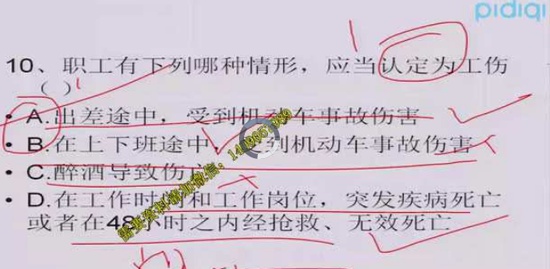 pidiqi
10、职工有下列哪种情形，应当认定为工伤
（ ）
• A.出差途中，受到机动车事故伤害
• B.在上下班途中，受到机动车事故伤害
• C.醉酒导致伤亡
• D.在工作时间和工作岗位，突发疾病死亡
或者在48小时之内经抢救、无效死亡